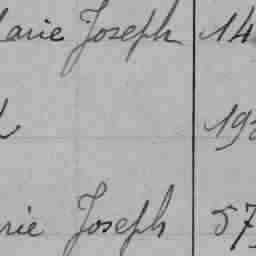 Marie Joseph 14
193
rie Joseph 57